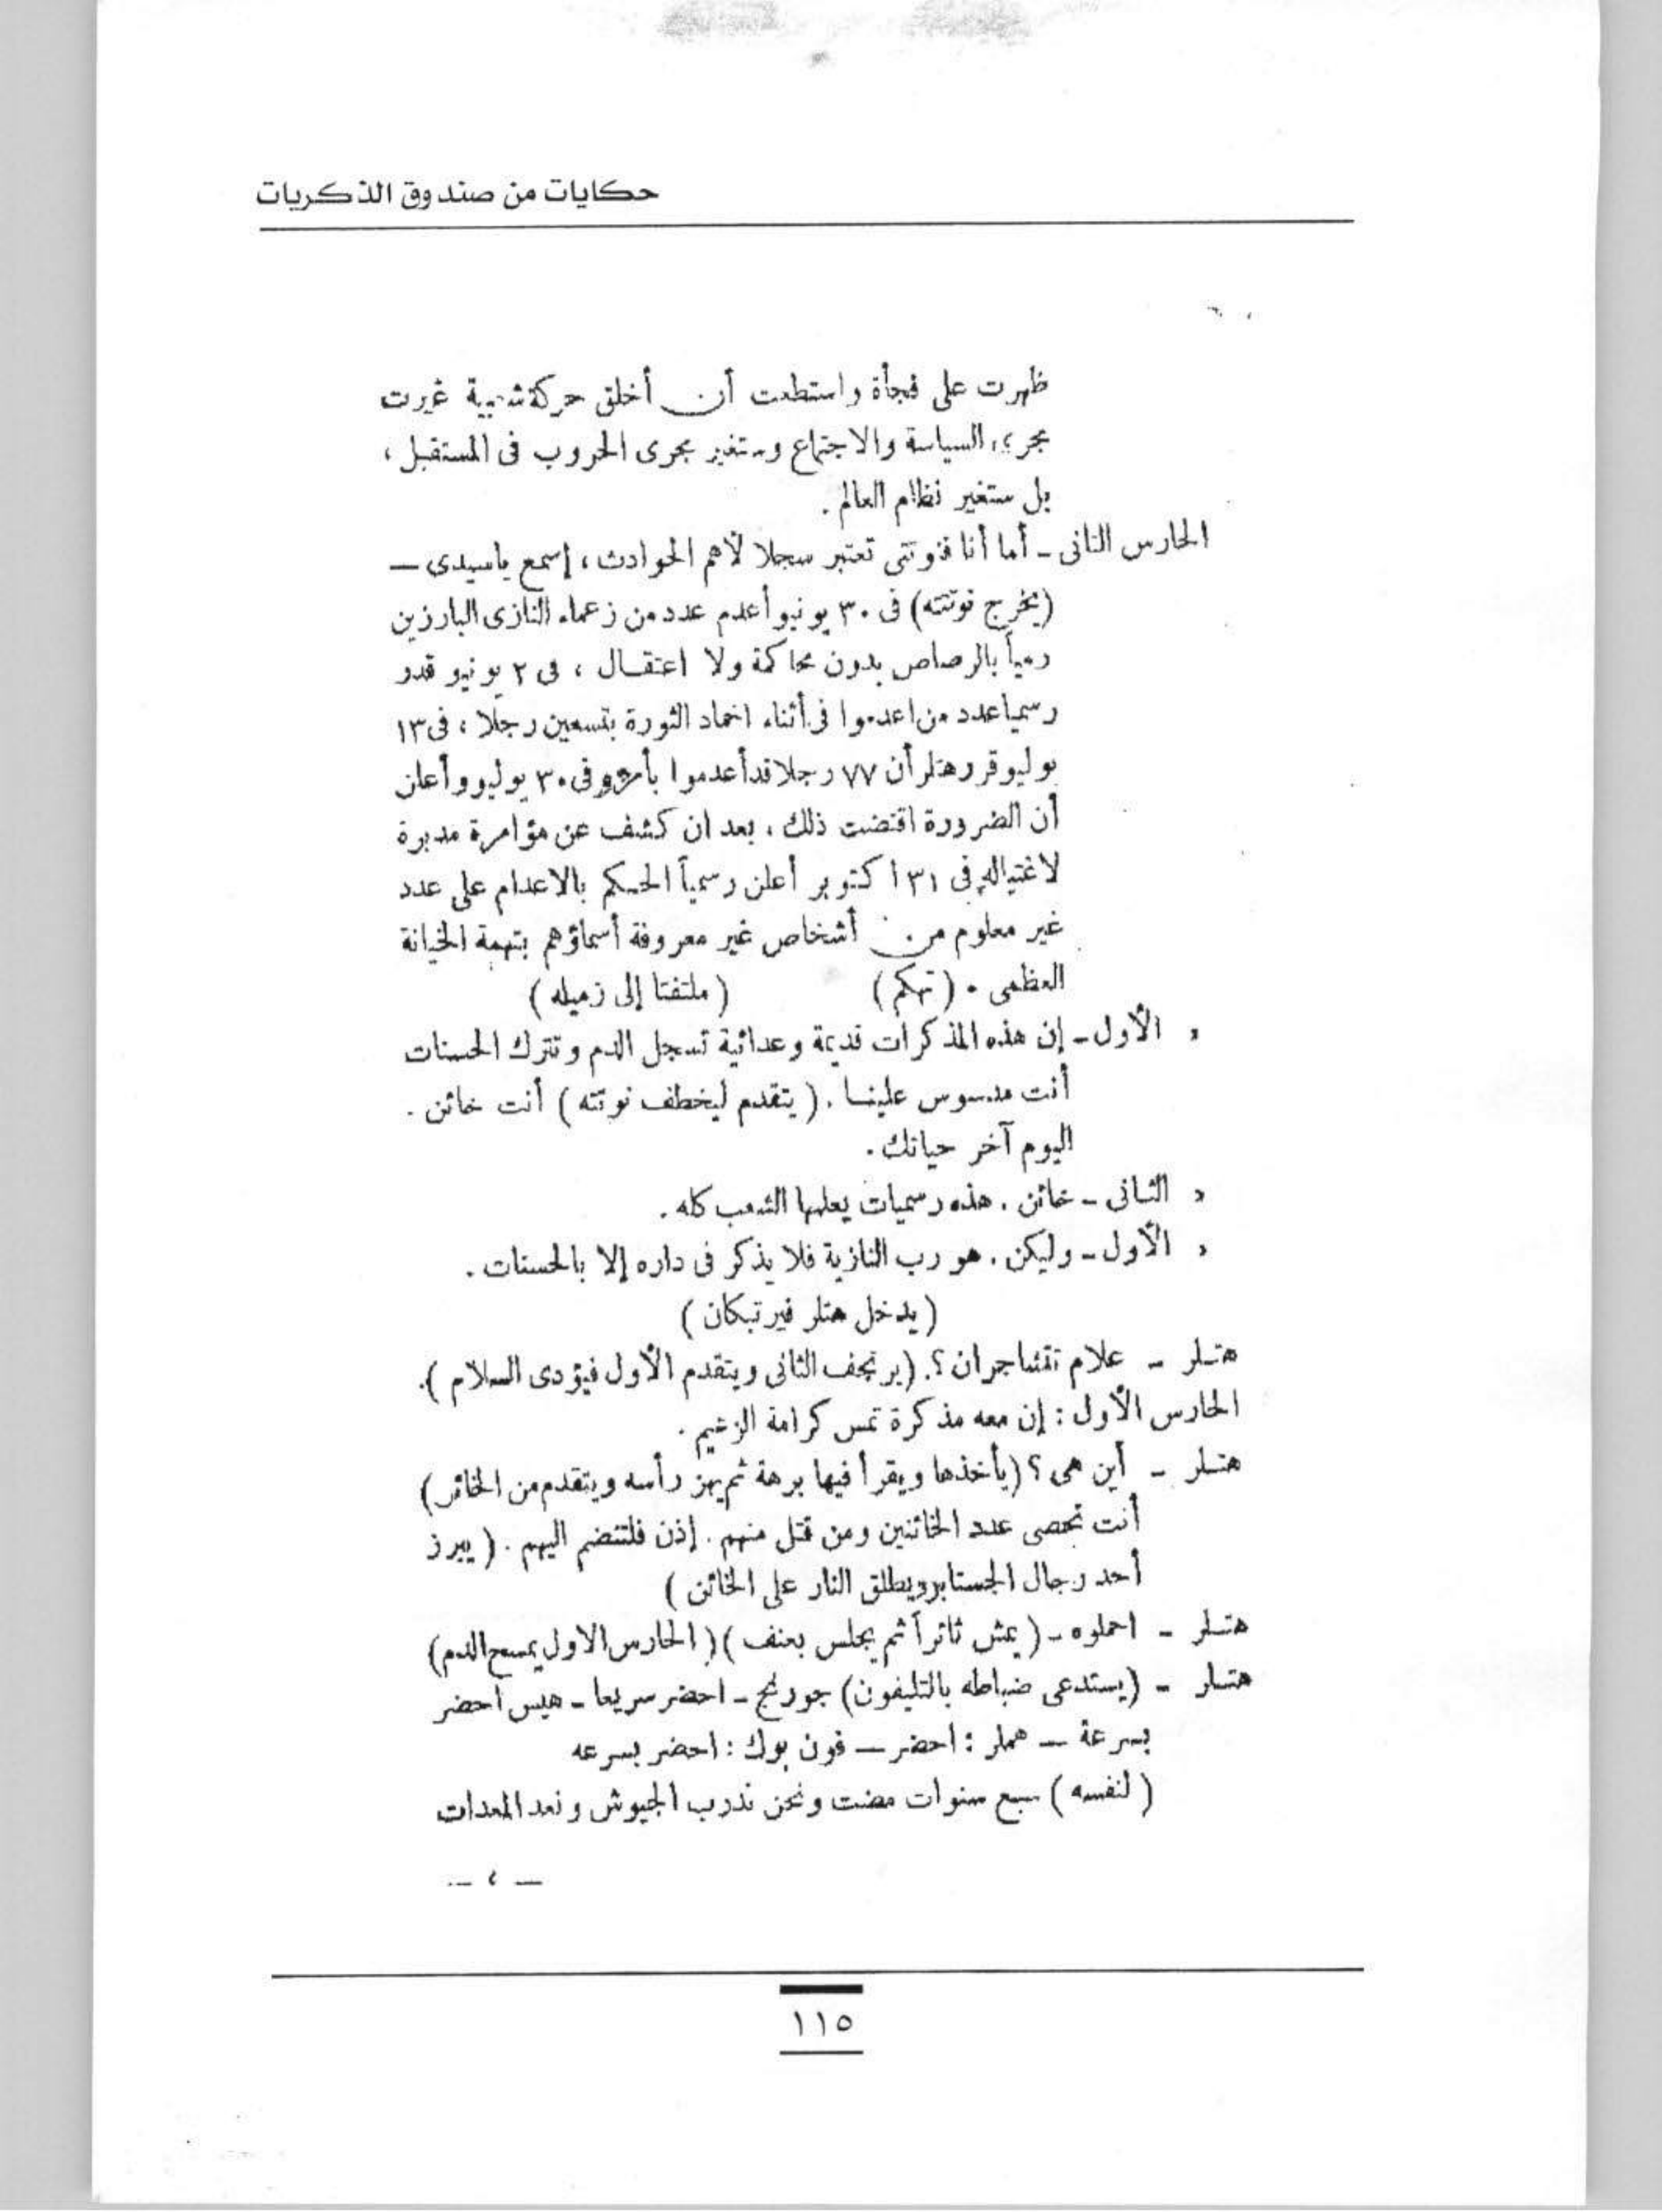 حكايات من صندوق الذكريات
ظهرت على فجأة واستطعت أن أخلق حركة شعبية غيرت
مجرى السياسة والاجتماع وستغير مجرى الحروب فى المستقبل ،
بل ستغير نظام العالم .
الحارس الثانى - أما أنا فنوتتى تعتبر سجلا لأهم الحوادث ، إسمع ياسيدى —
(يخرج نوتته) فى ٣٠ يونيو أعدم عدد من زعماء النازى البارزين
رمياً بالرصاص بدون محاكمة ولا اعتقال ، فى ٢ يونيو قدر
رسميا عدد من اعدموا فى أثناء اخماد الثورة بتسعين رجلا ، فى ١٣
يوليو قرر هتلر أن ٧٧ رجلا قد أعدموا بأمره وفى ٣٠ يوليو وأعلن
أن الضرورة اقتضت ذلك ، بعد ان كشف عن مؤامرة مدبرة
لاغتياله فى ٣١ أكتوبر أعلن رسمياً الحكم بالاعدام على عدد
غير معلوم من أشخاص غير معروفة أسماؤهم بتهمة الخيانة
العظمى . (تهكم) (ملتفتا إلى زميله)
« الأول - إن هذه المذكرات قديمة وعدائية تسجل الدم وتترك الحسنات
أنت مدسوس علينا . (يتقدم ليخطف نوتته) أنت خائن .
اليوم آخر حياتك .
« الثانى - خائن . هذه رسميات يعلمها الشعب كله .
« الأول - وليكن . هو رب النازية فلا يذكر فى داره إلا بالحسنات .
(يدخل هتلر فيرتبكان)
هتلر - علام تتشاجران ؟. (يرتجف الثانى ويتقدم الأول فيؤدى السلام ).
الحارس الأول : إن معه مذكرة تمس كرامة الزعيم .
هتلر - أين هى ؟ (يأخذها ويقرأ فيها برهة ثم يهز رأسه ويتقدم من الخائن)
أنت تحصى عدد الخائنين ومن قتل منهم . إذن فلتنضم اليهم . (يبرز
أحد رجال الجستابو ويطلق النار على الخائن )
هتلر - احملوه - (يمشى ثائراً ثم يجلس بعنف ) ( الحارس الاول يمسح الدم)
هتلر - (يستدعى ضباطه بالتليفون) جورنج - احضر سريعا - هيس احضر
بسرعة — هملر : احضر — فون بوك : احضر بسرعه
(لنفسه) سبع سنوات مضت ونحن ندرب الجيوش ونعد المعدات
— ٤ —
١١٥